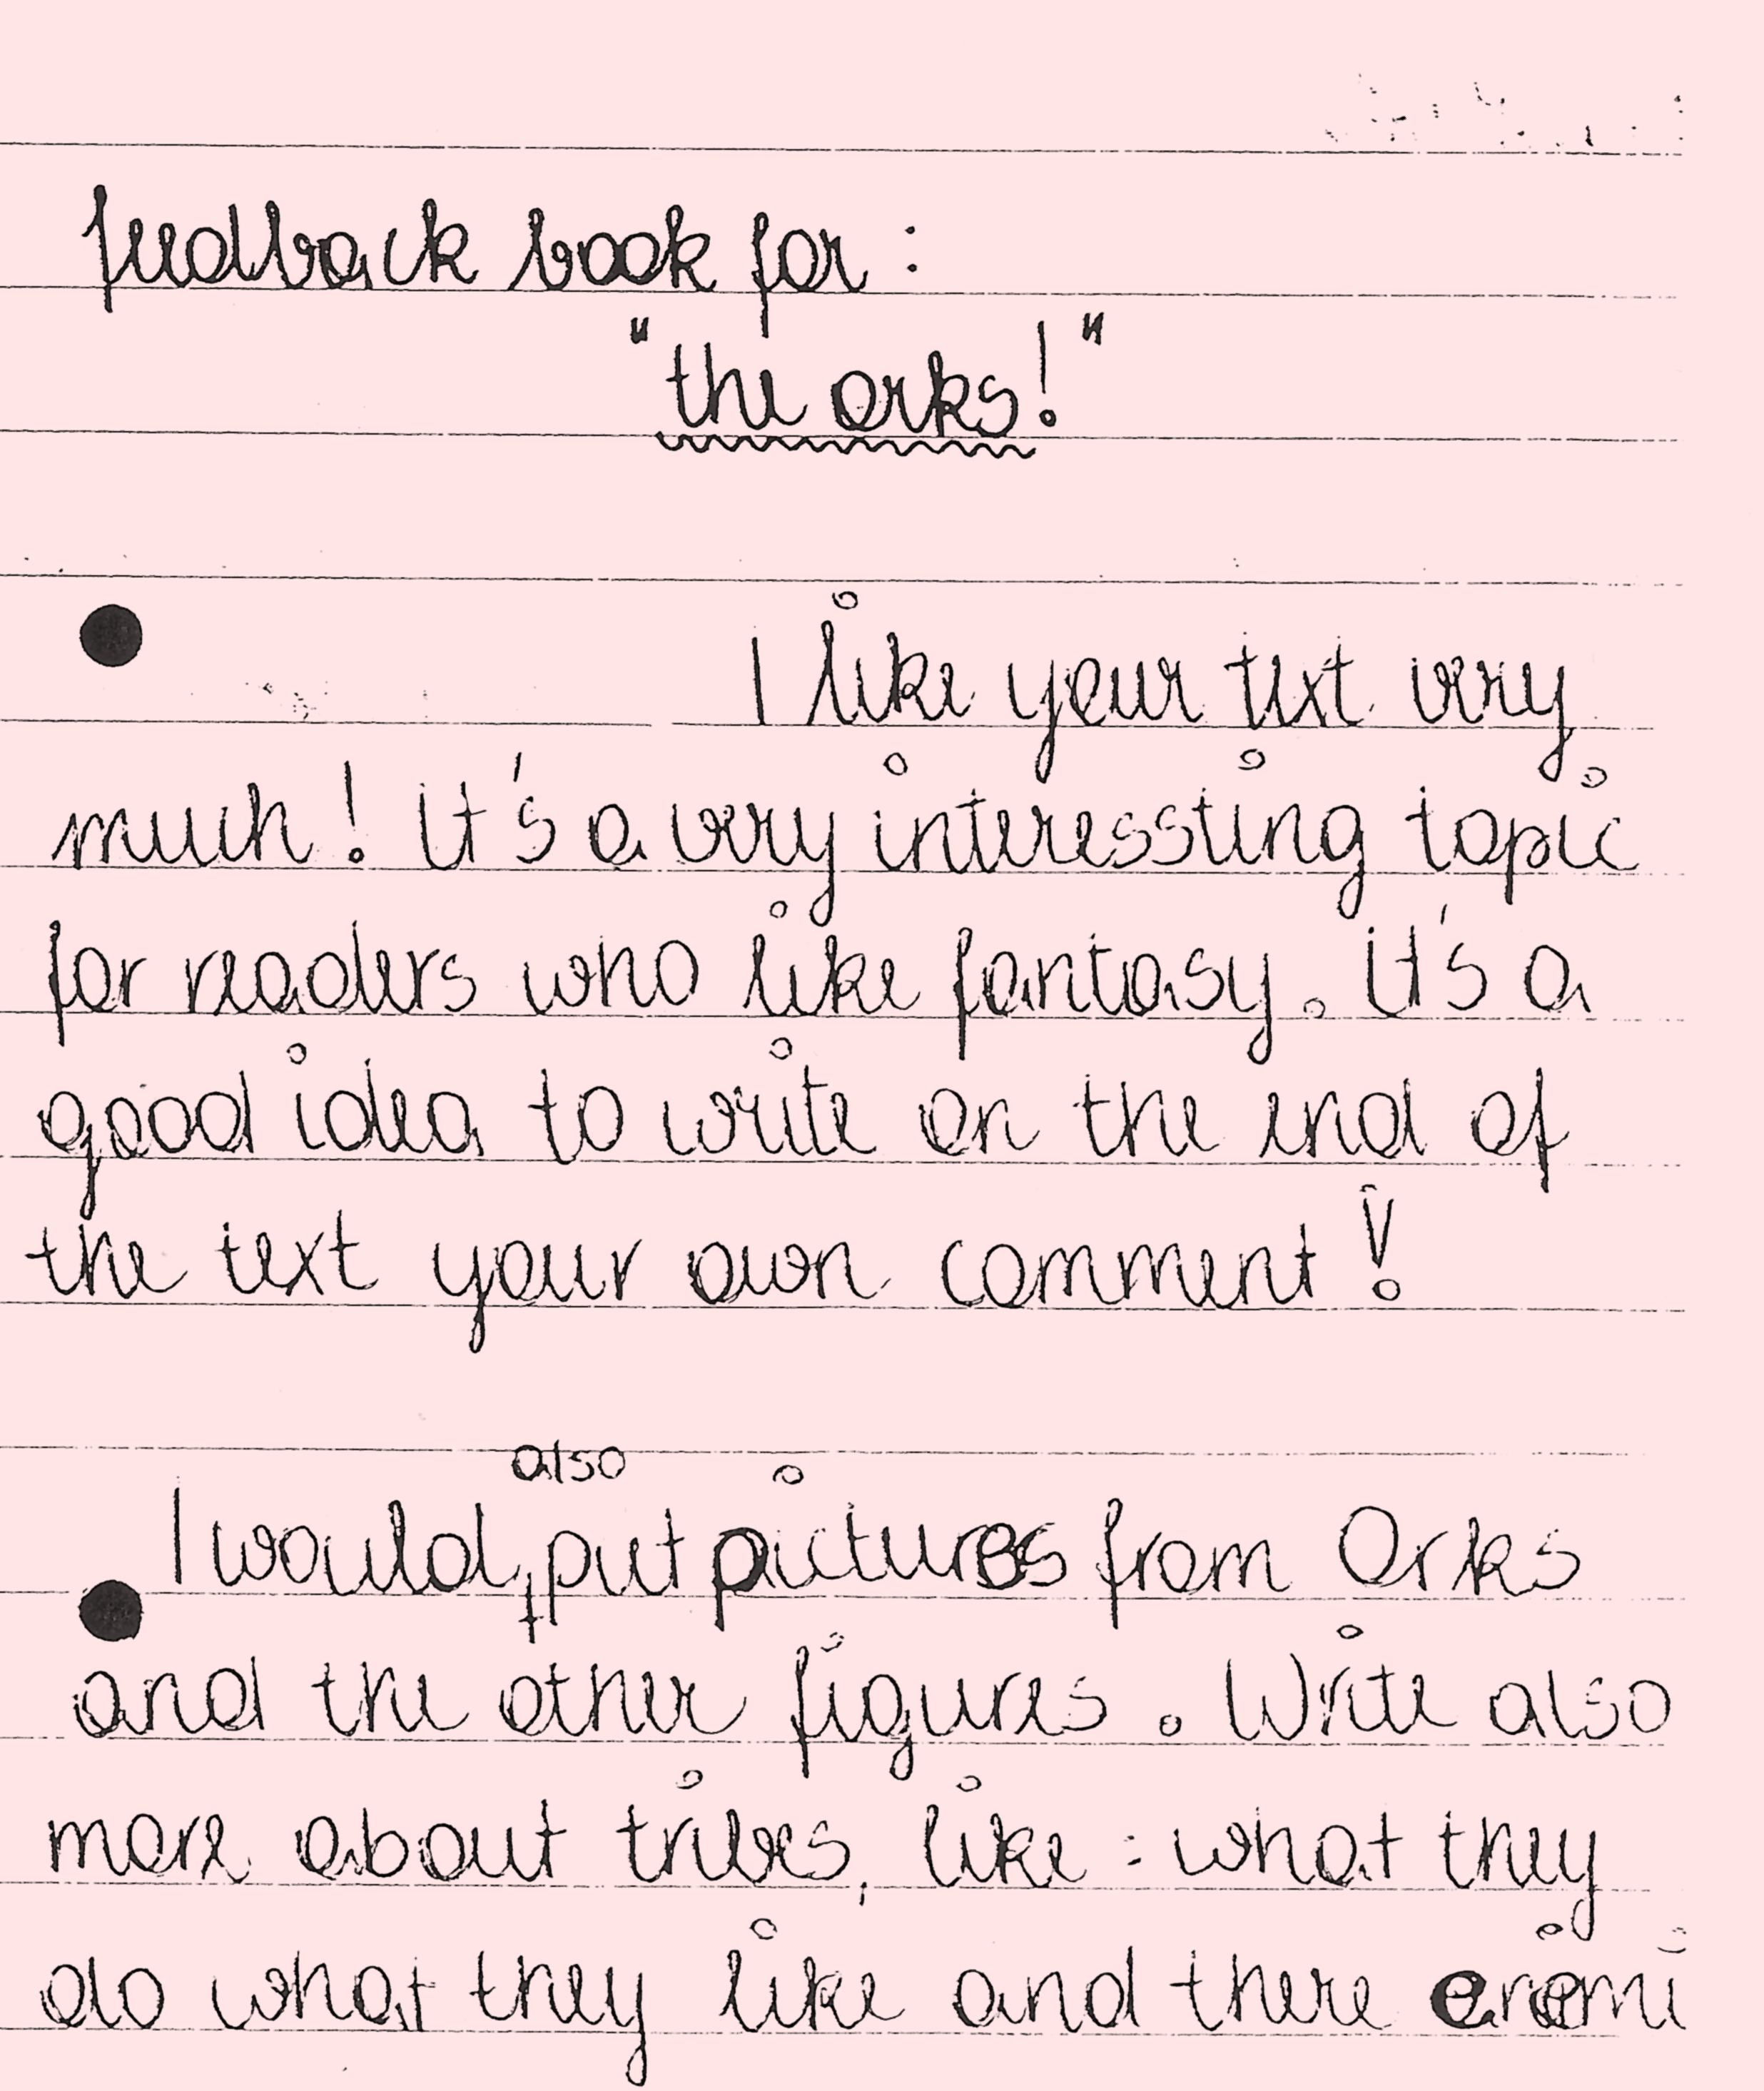 feedback book for:
"the orks!"
I like your text very
much! it's a very interessting topic
for readers who like fantasy. it's a
good idea to write on the end of
the text your own comment!
also
I would put pictures from Orks
and the other figures. Write also
more about tribes, like: what they
do what they like and there enemi